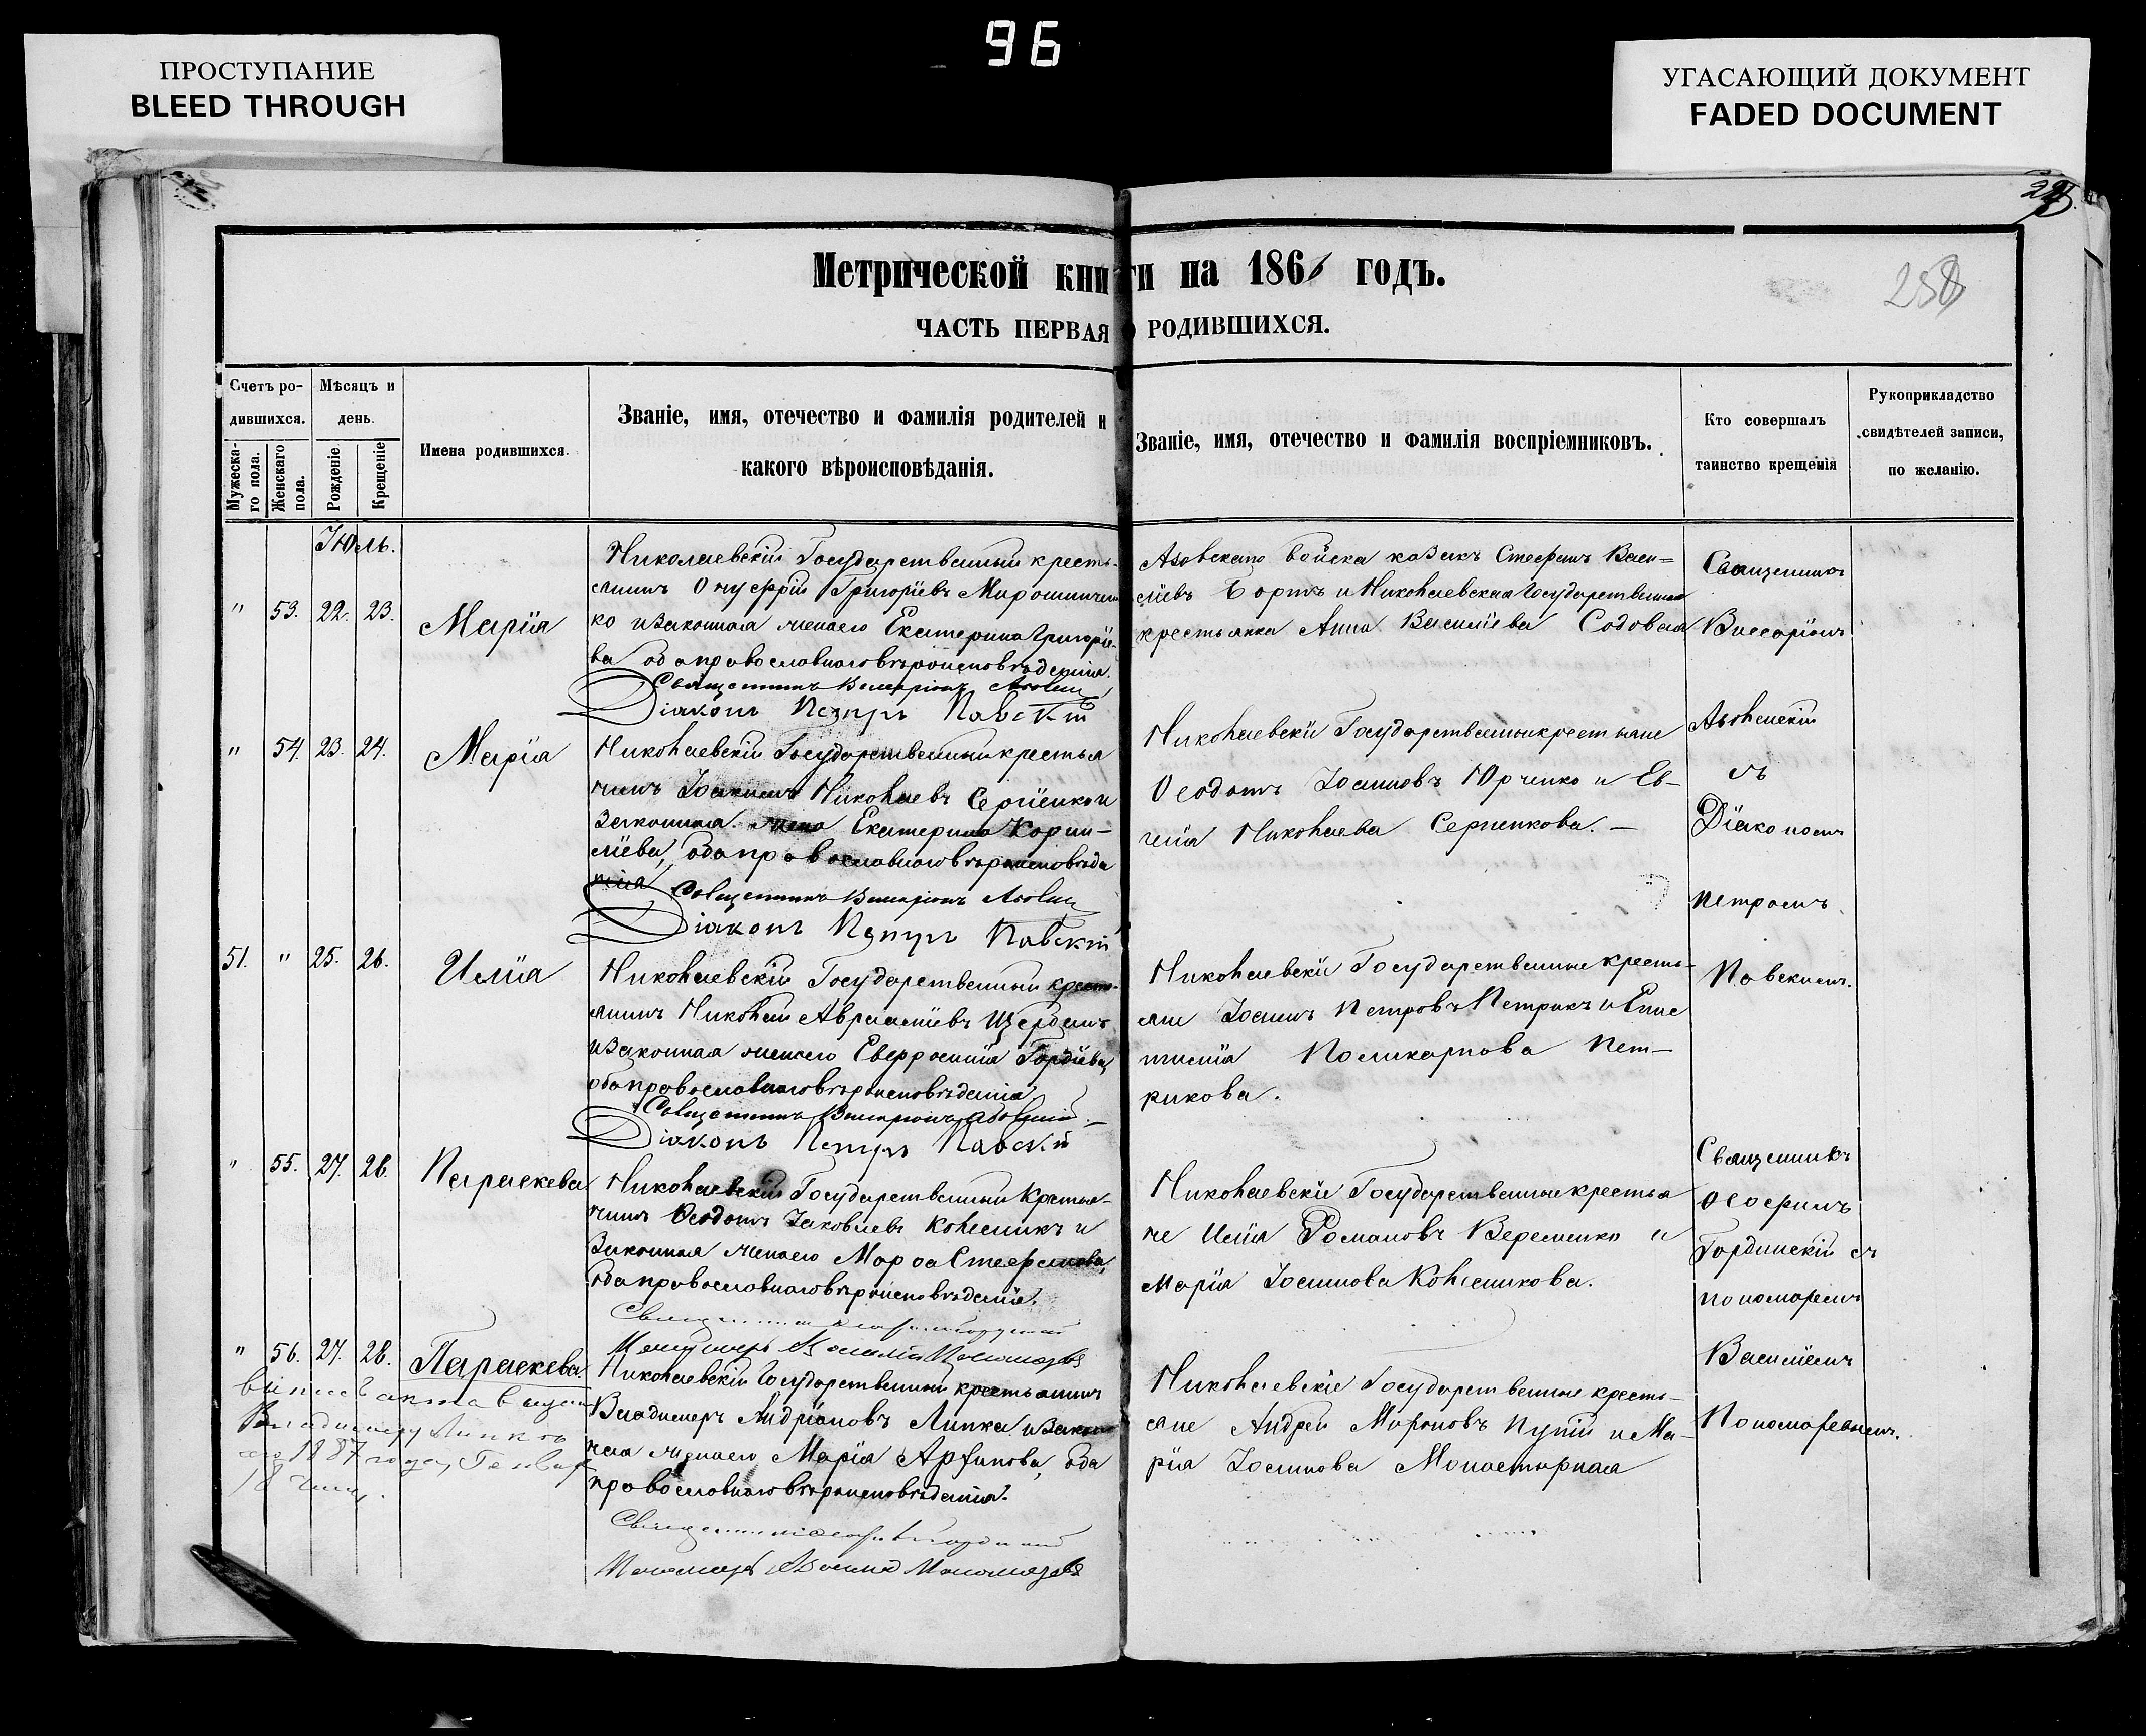 96
ПРОСТУПАНИЕ
BLEED THROUGH
УГАСАЮЩИЙ ДОКУМЕНТ
FADED DOCUMENT
258
Метрической книги на 1866 годъ.
ЧАСТЬ ПЕРВАЯ О РОДИВШИХСЯ.
Счетъ ро-
дившихся.
Мужеска-
го пола.
Женскаго
пола.
Мѣсяцъ и
день.
Рожденіе.
Крещеніе
Имена родившихся.
Званіе, имя, отечество и фамилія родителей и
какого вѣроисповѣданія.
Званіе, имя, отечество и фамилія воспріемниковъ.
Кто совершалъ
таинство крещенія
Рукоприкладство
свидѣтелей записи,
по желанію.
Июль.
" 53. 22. 23. Марїя
Николаевскій Государственный кресть-
янинъ Онуфрій Григоріевъ Мирошничен
ко и законная жена его Екатерина Григоріе-
ва оба православнаго вѣроисповѣданія.
Священникъ Виссаріонъ
Діаконъ Петръ Павскій
Азовскаго войска козакъ Стефанъ Васи=
ліевъ Бортъ и Николаевская Государственная
крестьянка Анна Василіева Содовая
Священникъ
Виссаріонъ
" 54. 23. 24. Марїя
Николаевскій Государственный крестья
нинъ Іоакимъ Николаевъ Сергіенко и
законная жена Екатерина Корни-
ліева, оба православнаго вѣроисповѣда
нія
Священникъ Виссаріонъ
Діаконъ Петръ Павскій
Николаевскіи Государственные крестьяне
Ѳеодотъ Іоанновъ Юрченко и Ев-
генія Николаева Сергіенкова. —
съ
Діакономъ
Петромъ
Павскимъ.
51. " 25. 26. Илїя
Николаевскій Государственный кресть-
янинъ Николай Авраміевъ Щербань
и законная жена его Евфросинія Гордіева,
оба православнаго вѣроисповѣданія.
Священникъ Виссаріонъ
Діаконъ Петръ Павскій
Николаевскіе Государственные кресть-
яне Іоаннъ Петровъ Петрикъ и Епис
тимія Поликарпова Пет-
рикова.
" 55. 27. 28. Параскева
Николаевскій Государственный крестья-
нинъ Ѳеодотъ Іаковлевъ Колесникъ и
законная жена его Марѳа Стефанова,
оба православнаго вѣроисповѣданія.
Пономарь Василій Пономаревъ
Николаевскіе Государственные крестья
не Илія Романовъ Веременко и
Марія Іоаннова Колесникова.
Священникъ
Іосифъ
Гординскій съ
пономаремъ
Василіемъ
Пономаревымъ.
" 56. 27. 28. Параскева.
Николаевскій Государственный крестьянинъ
Владимеръ Андріановъ Липка и закон
ная жена его Марія Арѳипова, оба
православнаго вѣроисповѣданія.
Пономарь Василій Пономаревъ
Николаевскіе Государственные кресть-
яне Андрей Мироновъ Пугій и Ма-
рія Іоаннова Монастырная